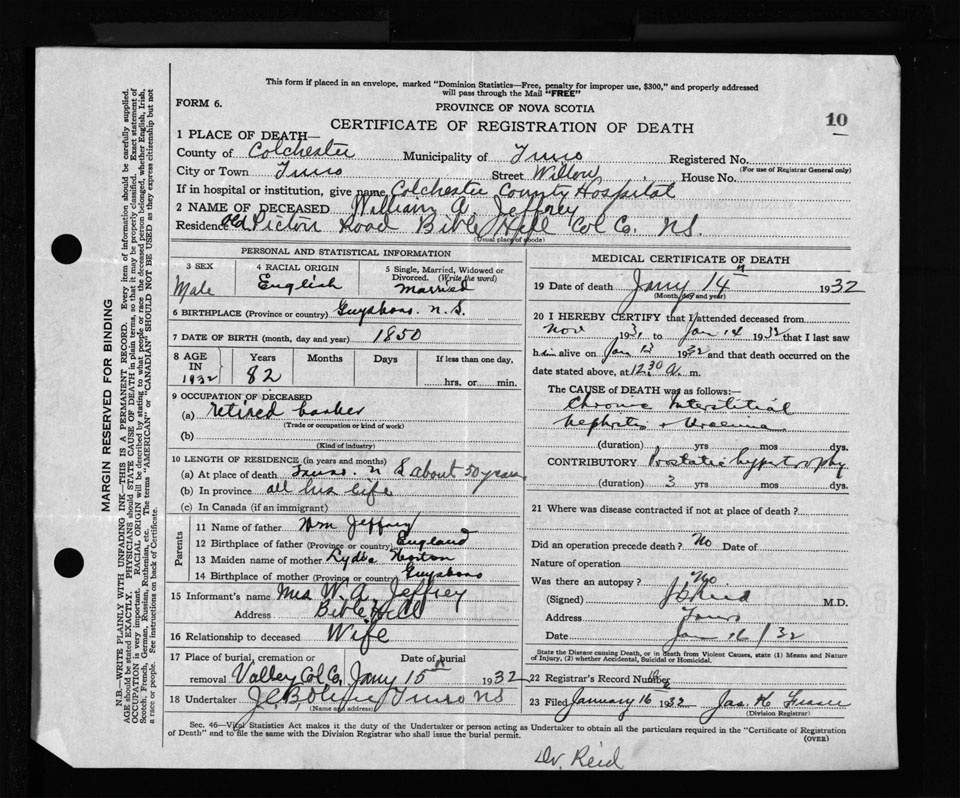 This form if placed in an envelope, marked "Dominion Statistics—Free, penalty for improper use, $300," and properly addressed
will pass through the Mail "FREE"
FORM 6.
PROVINCE OF NOVA SCOTIA
10
CERTIFICATE OF REGISTRATION OF DEATH
1 PLACE OF DEATH—
County of Colchester Municipality of Truro Registered No.
(For use of Registrar General only)
City or Town Truro Street Willow House No.
If in hospital or institution, give name Colchester County Hospital
2 NAME OF DECEASED William A. Jeffrey
Residence Old Pictou Road Bible Hill Col Co. N.S.
(Usual place of abode)
PERSONAL AND STATISTICAL INFORMATION
3 SEX Male
4 RACIAL ORIGIN English
5 Single, Married, Widowed or Divorced. (Write the word) Married
6 BIRTHPLACE (Province or country) Guysboro. N.S.
7 DATE OF BIRTH (month, day and year) 1850
8 AGE IN 1932 Years 82 Months Days If less than one day, hrs. or min.
9 OCCUPATION OF DECEASED
(a) retired
(Trade or occupation or kind of work)
(b)
(Kind of industry)
10 LENGTH OF RESIDENCE (in years and months)
(a) At place of death Truro. N S about 50 years
(b) In province all his life
(c) In Canada (if an immigrant)
Parents
11 Name of father Wm Jeffrey
12 Birthplace of father (Province or country) England
13 Maiden name of mother Lydia Horton
14 Birthplace of mother (Province or country) Guysboro
15 Informant's name Mrs W. A. Jeffrey
Address Bible Hill
16 Relationship to deceased Wife
17 Place of burial, cremation or Date of burial
removal Valley Col Co. Jany 15 1932
18 Undertaker Truro NS
(Name and address)
MEDICAL CERTIFICATE OF DEATH
19 Date of death Jany 14th 1932
(Month, day and year)
20 I HEREBY CERTIFY that I attended deceased from
Nov 1931, to Jan 14 1932 that I last saw
him alive on Jan 13 1932 and that death occurred on the
date stated above, at 12.30 A. m.
The CAUSE of DEATH was as follows:
Chronic Interstitial
Nephritis + Uraemia
(duration) yrs mos dys.
CONTRIBUTORY Prostatic hypertrophy
(duration) 3 yrs mos dys.
21 Where was disease contracted if not at place of death?
Did an operation precede death? No Date of
Nature of operation
Was there an autopsy? No.
(Signed) Reid M.D.
Address Truro
Date Jan 16 / 32
State the Disease causing Death, or in Death from Violent Causes, state (1) Means and
Nature of Injury, (2) whether Accidental, Suicidal or Homicidal.
22 Registrar's Record Number
23 Filed January 16 1932 Jas. H. Fraser
(Division Registrar)
Sec. 46—Vital Statistics Act makes it the duty of the Undertaker or person acting as Undertaker to obtain all the particulars required in the "Certificate of Registration
of Death" and to file the same with the Division Registrar who shall issue the burial permit.
(OVER)
Dr. Reid
MARGIN RESERVED FOR BINDING
N.B.—WRITE PLAINLY WITH UNFADING INK—THIS IS A PERMANENT RECORD. Every item of information should be carefully supplied.
AGE should be stated EXACTLY. PHYSICIANS should STATE CAUSE OF DEATH in plain terms, so that it may be properly classified. Exact statement of
OCCUPATION is very important. RACIAL ORIGIN will be described by stating to what people or race the deceased person belonged, whether English, Irish,
Scotch, French, German, Russian, Ruthenian, etc. The terms "AMERICAN" or "CANADIAN" SHOULD NOT BE USED as they express citizenship but not
a race or people. See instructions on back of Certificate.